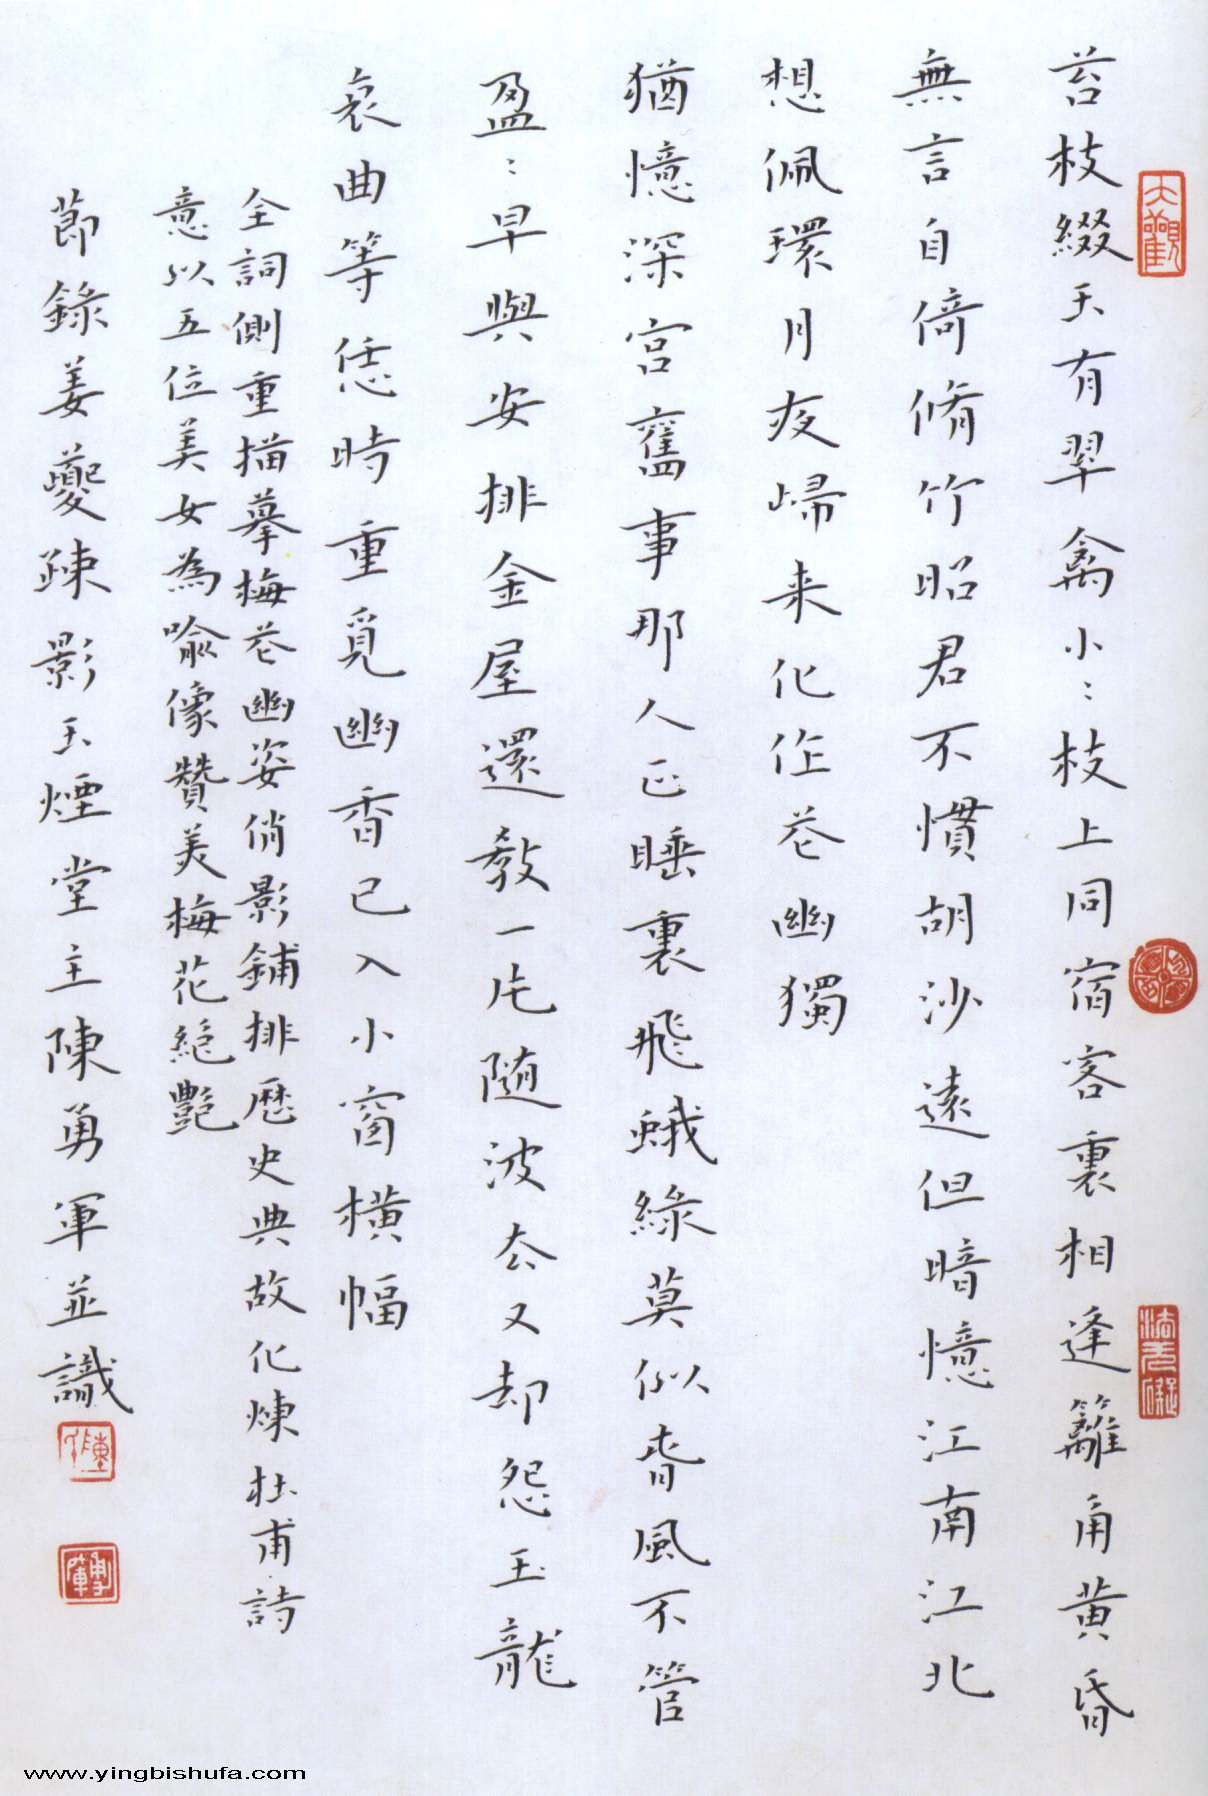 苔枝綴玉有翠禽小〻枝上同宿客裏相逢籬角黄昏
無言自倚脩竹昭君不慣胡沙遠但暗憶江南江北
想佩環月夜歸来化作花幽獨
猶憶深宫舊事那人正睡裏飛蛾綠莫似春風不管
盈〻早與安排金屋還教一片随波去又却怨玉龍
哀曲等恁時重覓幽香已入小窗横幅
全詞側重描摹梅花幽姿俏影鋪排歷史典故化煉杜甫詩
意以五位美女為喻像贊美梅花絕艷
節錄姜夔疎影玉煙堂主陳勇軍並識
大觀
www.yingbishufa.com